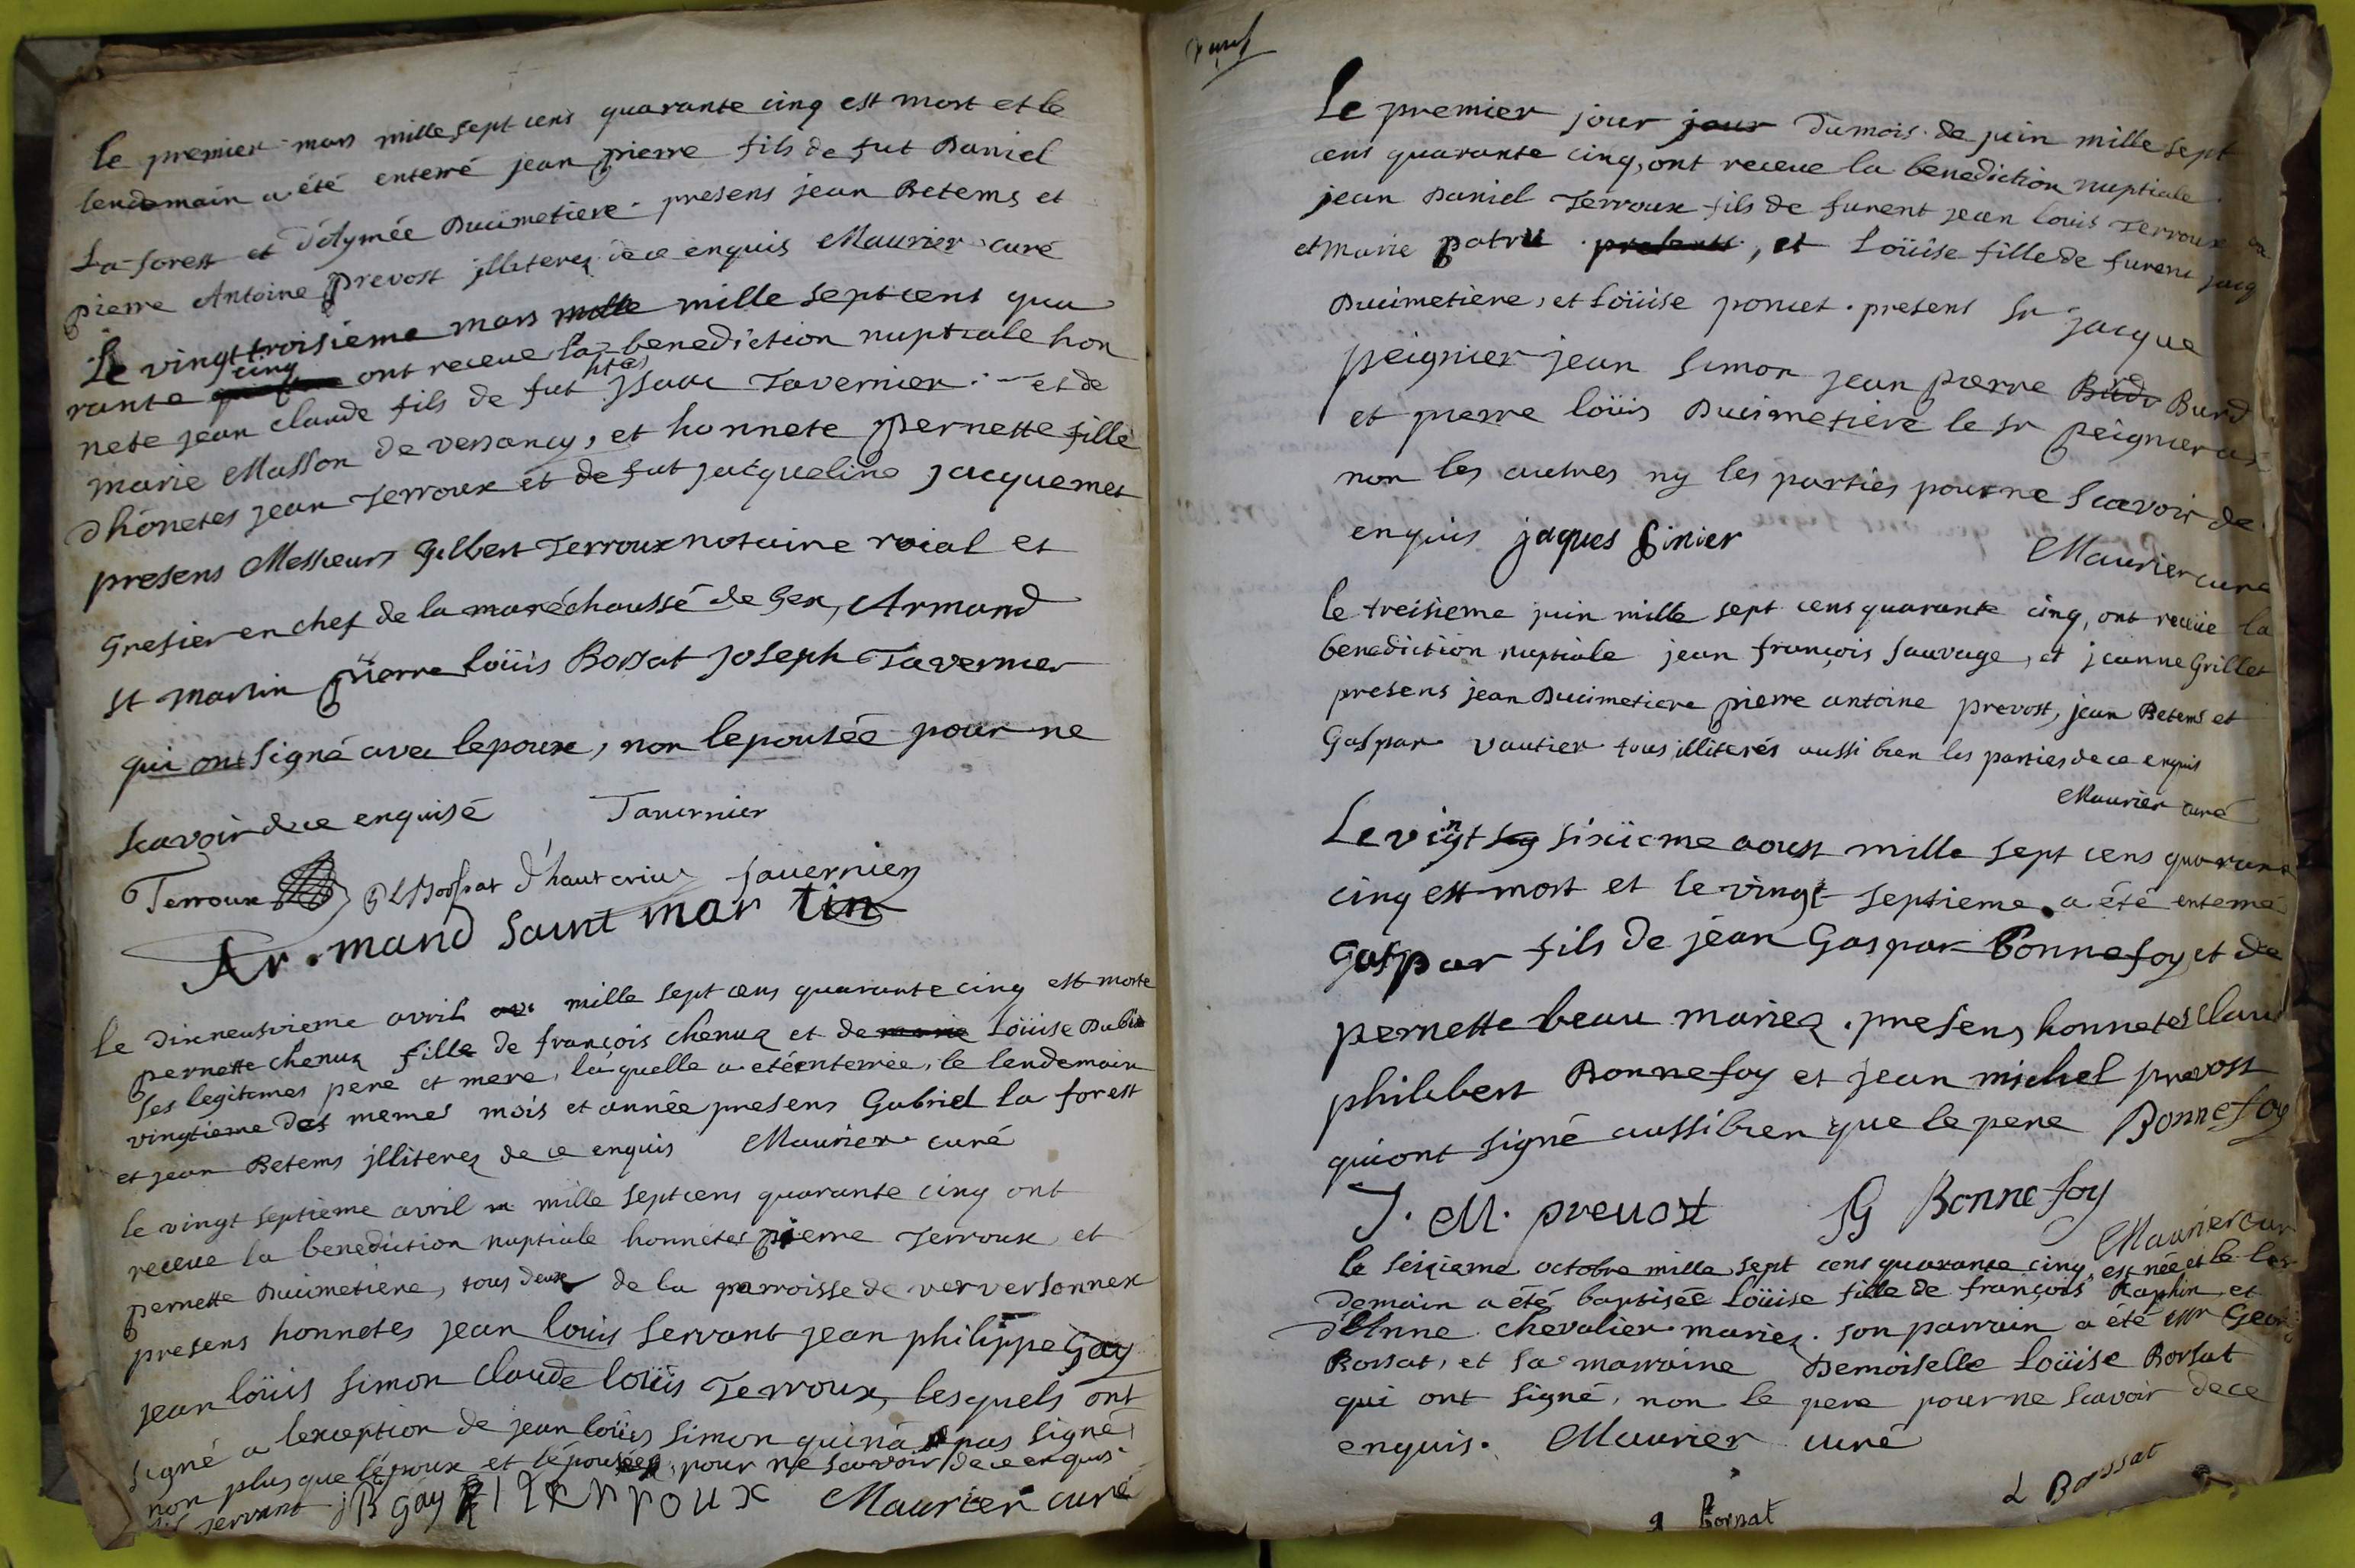 le premier mars mille sept cens quarante cinq est mort et le
lendemain a été enterré jean pierre fils de fut Daniel
La forest et d'étymée Ducimetiere. presens jean Betems et
pierre Antoine prevost jlliterez de ce enquis Maurier curé
Le vingt troisieme mars mille mille sept cens qua
rante cinq ont receue la benediction nuptiale hon
nete jean claude fils de fut htes jsaac Tavernier. et de
marie Masson de versoncy, et honnete pernette fille
d'hônetes jean Terroux et de fut jacqueline jacquemet
presens Messieurs Gilbert Terroux notaire roial et
Grefier en chef de la maréchaussé de Gex, Armand
st martin pierre loüis Borsat joseph Tavernier
qui ont signé avec lepoux, non lepousée pour ne
scavoir de ce enquise Tavernier
Terroux PL Borssat d'hauterive Tavernier
Ar.mand saint mar tin
le dixneufvieme avril mille sept cens quarante cinq est morte
pernette chenuz fille de françois chenuz et de marie Loüise Dubi
ses legitimes pere et mere, laquelle a eté enterrée, le lendemain
vingtieme des memes mois et année presens Gabriel la forest
et jean Betems jlliterez de ce enquis Maurier curé
le vingt septieme avril m mille sept cens quarante cinq ont
receue la benediction nuptiale honnétes pierre Terroux et
pernette Ducimetiere, tous deux de la parroisse de ver versonnex
presens honnetes jean louis servant jean philippe Gay
jean loüis simon claude loüis Terroux, lesquels ont
signé a lexception de jean loüis simon qui n'a pas signé
non plus que l'époux et l'épousée, pour ne scavoir de ce enquis
servant jp gay Terroux Maurier curé
Le premier jour jour du mois de juin mille sept
cens quarante cinq, ont receue la benediction nuptiale
jean Daniel Terroux fils de furent jean louis Terroux
et marie patru presents, et Loüise fille de furent jacq
Ducimetiere, et Loüise poncet. presens sr jacque
peignier jean simon jean pierre Burd
et pierre loüis Ducimetiere le sr peignier a
non les autres ny les parties pour ne scavoir de
enquis jaques pinier
Maurier curé
le treisieme juin mille sept cens quarante cinq, ont receüe la
benediction nuptiale jean françois sauvage, et jeanne Grillet
presens jean Ducimetiere pierre antoine prevost, jean Betems et
Gaspar Vautier tous jlliterés aussi bien les parties de ce enquis
Maurier curé
Le vingt sixieme aoust mille sept cens quarante
cinq est mort et le vingt septieme a été enterré
Gaspar fils de jean Gaspar Bonnefoy et de
pernette beau mariez. presens honnetes claud
philibert Bonnefoy et jean michel prevost
qui ont signé aussi bien que le pere Bonnefoy
J. M. prevost JG Bonnefoy
Maurier cur
le seizieme octobre mille sept cens quarante cinq, est née et le len
demain a été baptisée Loüise fille de françois Raphin, et
d'Anne chevalier mariez. son parrain a été mr George
Borsat, et sa marraine Demoiselle Loüise Borsat
qui ont signé, non le pere pour ne scavoir de ce
enquis. Maurier curé
g Borsat L Borssat